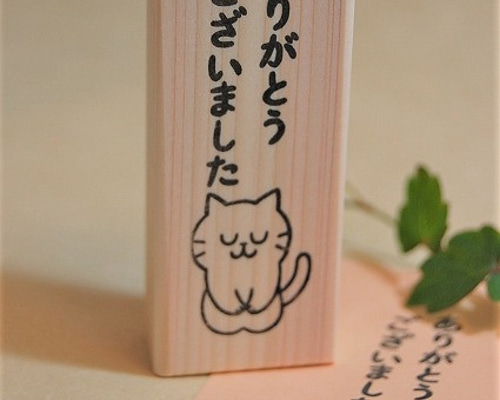 りがとう
ございました
ありがとう
ございまし